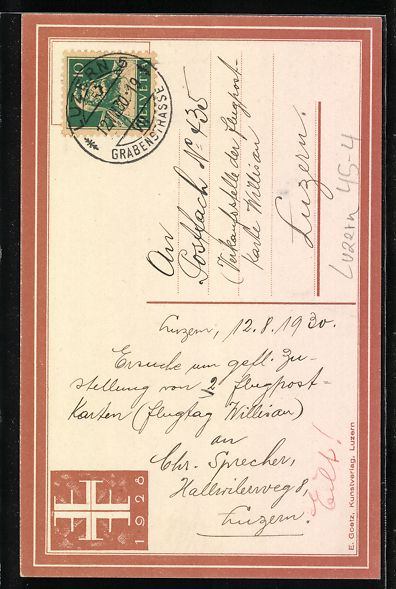 10
HELVETIA
LUZERN
GRABENSTRASSE
An
Postfach № 435
(Verkaufsstelle der Flugpost-
karte Willisau
Luzern.
Luzern 45-4
Luzern, 12.8.1930.
Ersuche um gefl. Zu-
stellung von 2 Flugpost-
Karten (Flugtag Willisau)
an
Chr. Sprecher,
Hallwilerweg 8,
Luzern.
Eilt!
1928
E. Goetz, Kunstverlag, Luzern